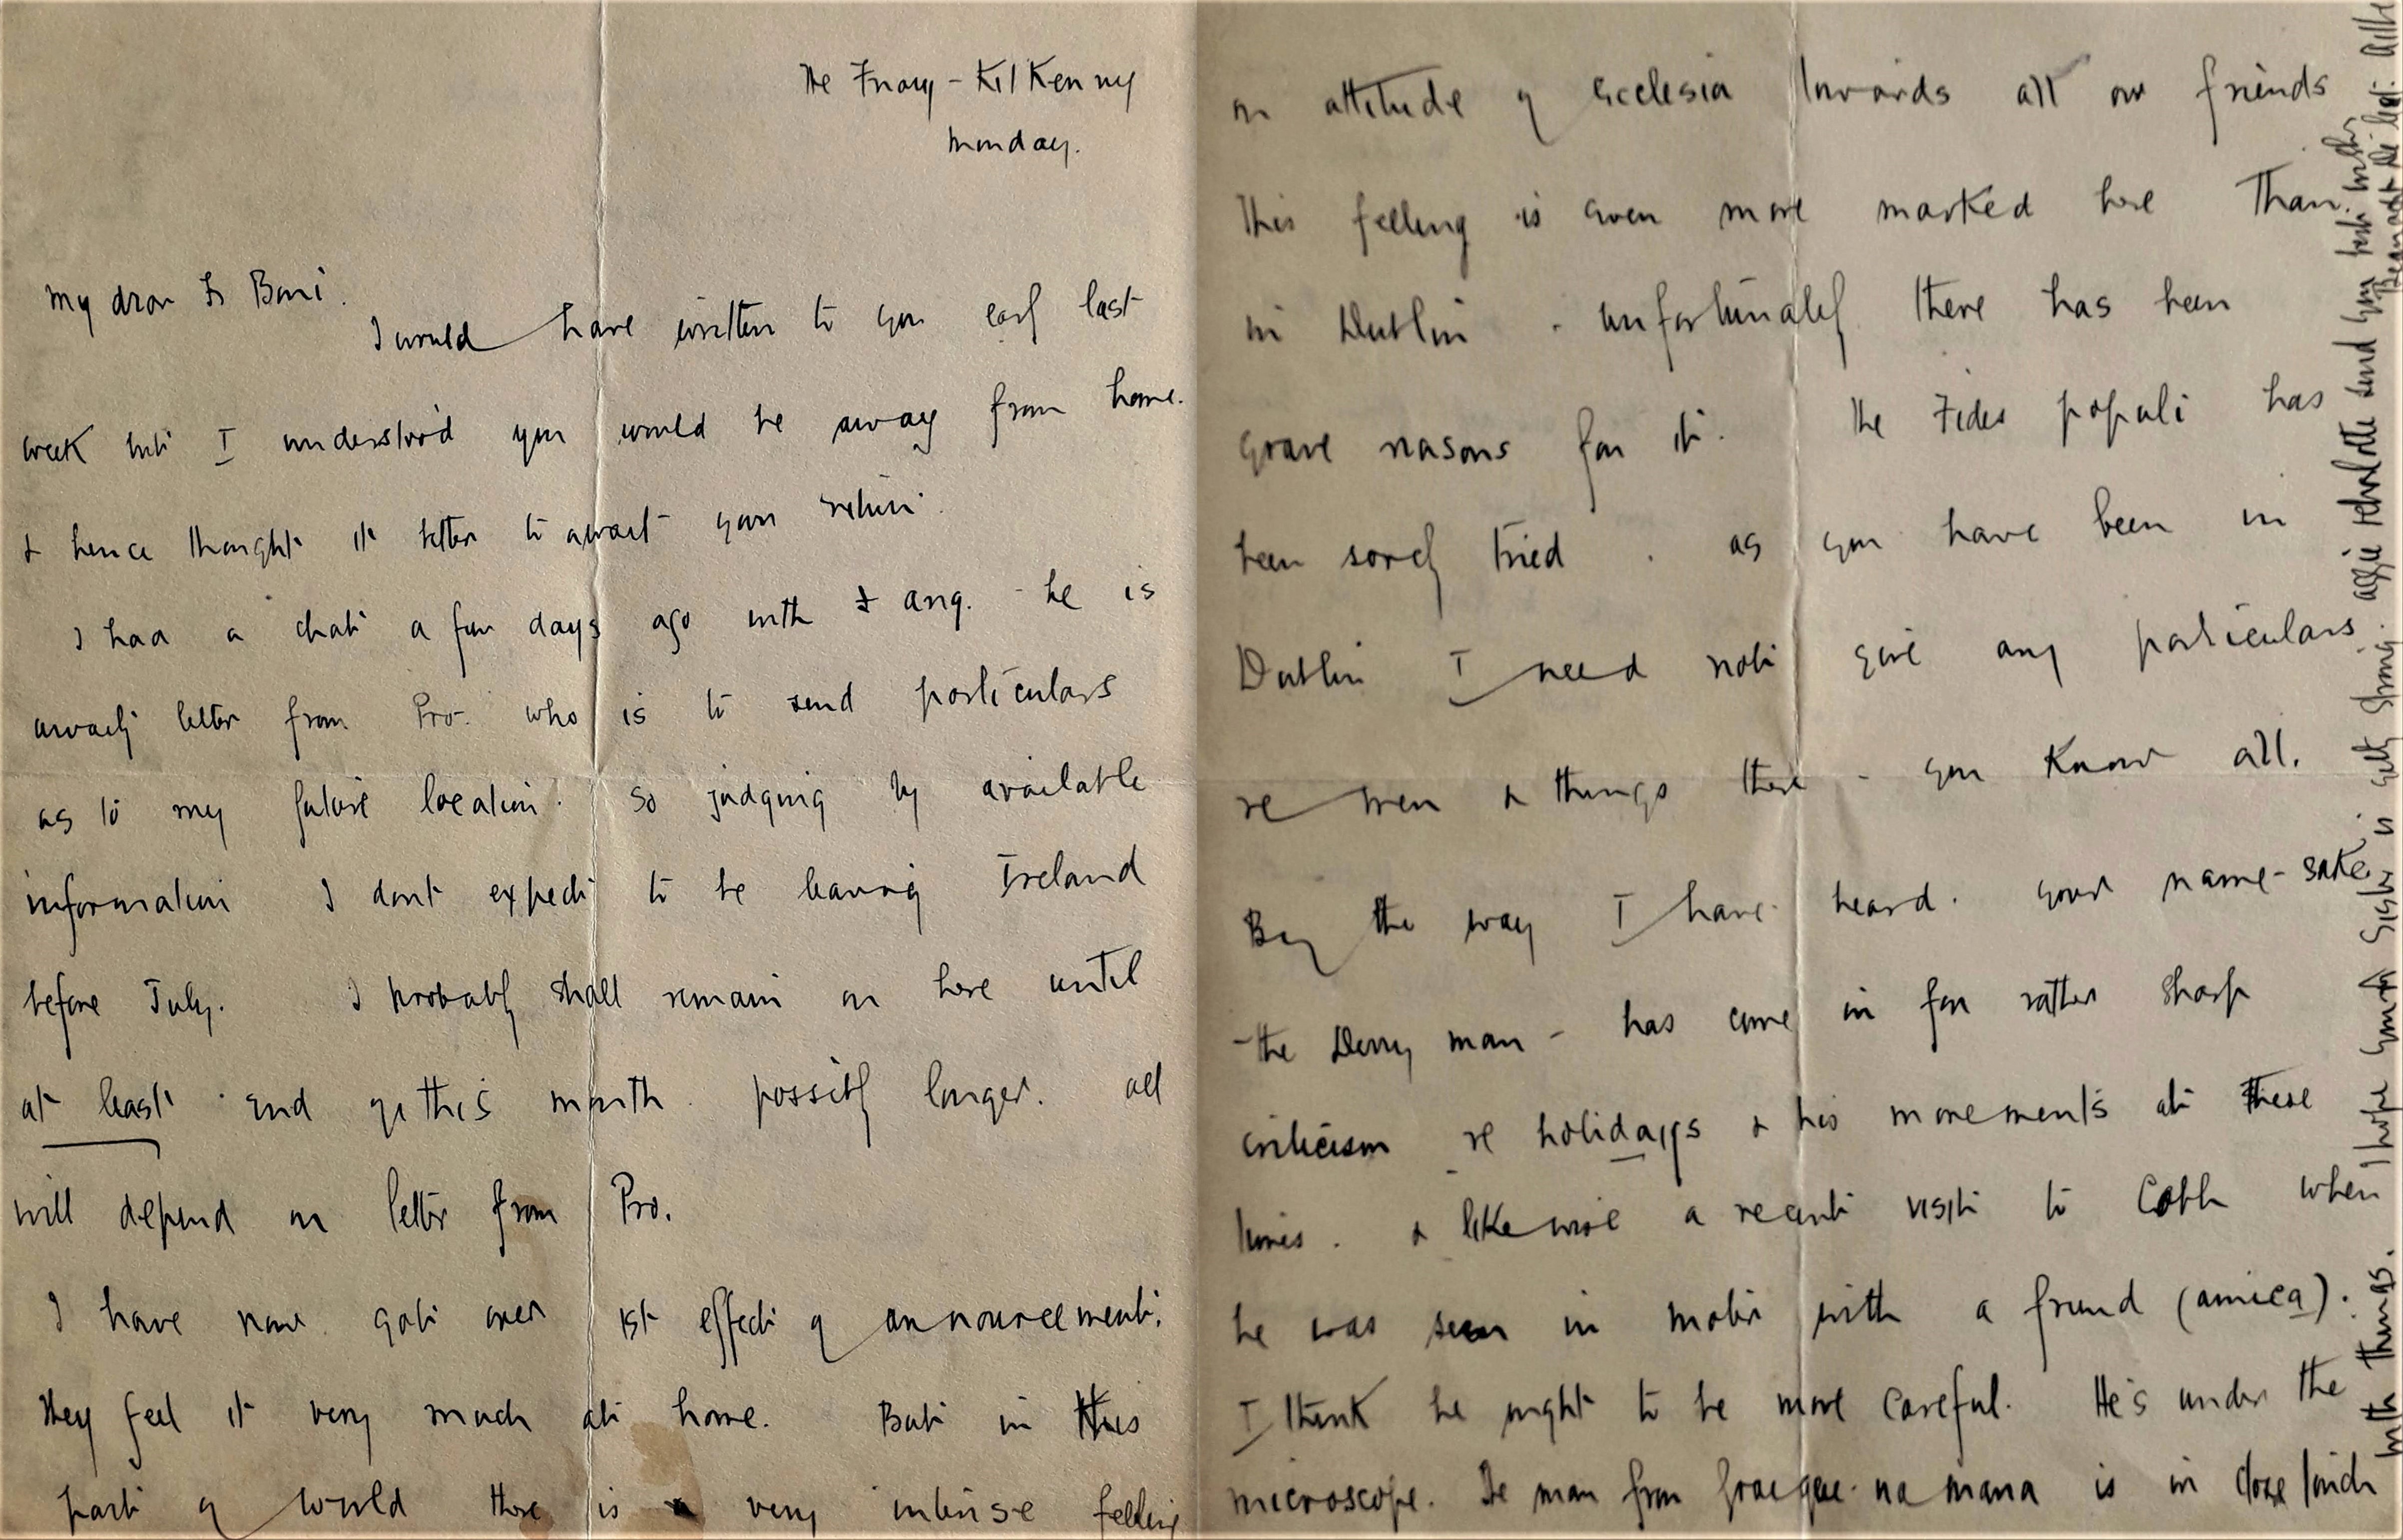 The Friary - Kilkenny
Monday.
My dear Fr Boni.
I would have written to you early last
week but I understood you would be away from home.
& hence thought it better to await your return.
I had a chat a few days ago with Fr Ang. he is
awaitg letter from Pro. who is to send particulars
as to my future location. So judging by available
information I dont expect to be leaving Ireland
before July. I probably shall remain on here until
at least end of this month. possibly longer. all
will depend on letter from Pro.
I have now got over 1st effect of announcement.
They feel it very much at home. But in this
part of world there is a very intense feeling
on attitude of Ecclesia towards all our friends
This feeling is even more marked here than
in Dublin. unfortunately there has been
grave reasons for it. The Fides populi has
been sorely tried. as you have been in
Dublin I need not give any particulars
re men & things there - you know all.
By the way I have heard. your name-sake
- the Derry man - has come in for rather sharp
criticism re holidays & his movements at these
times. & likewise a recent visit to Cobh when
he was seen in motor with a friend (amica).
I think he ought to be more careful. He's under the
microscope. The man from Graigue-na mana is in close touch
with things. I hope Smyth Sight is getg strong. aggie
send you best wishes